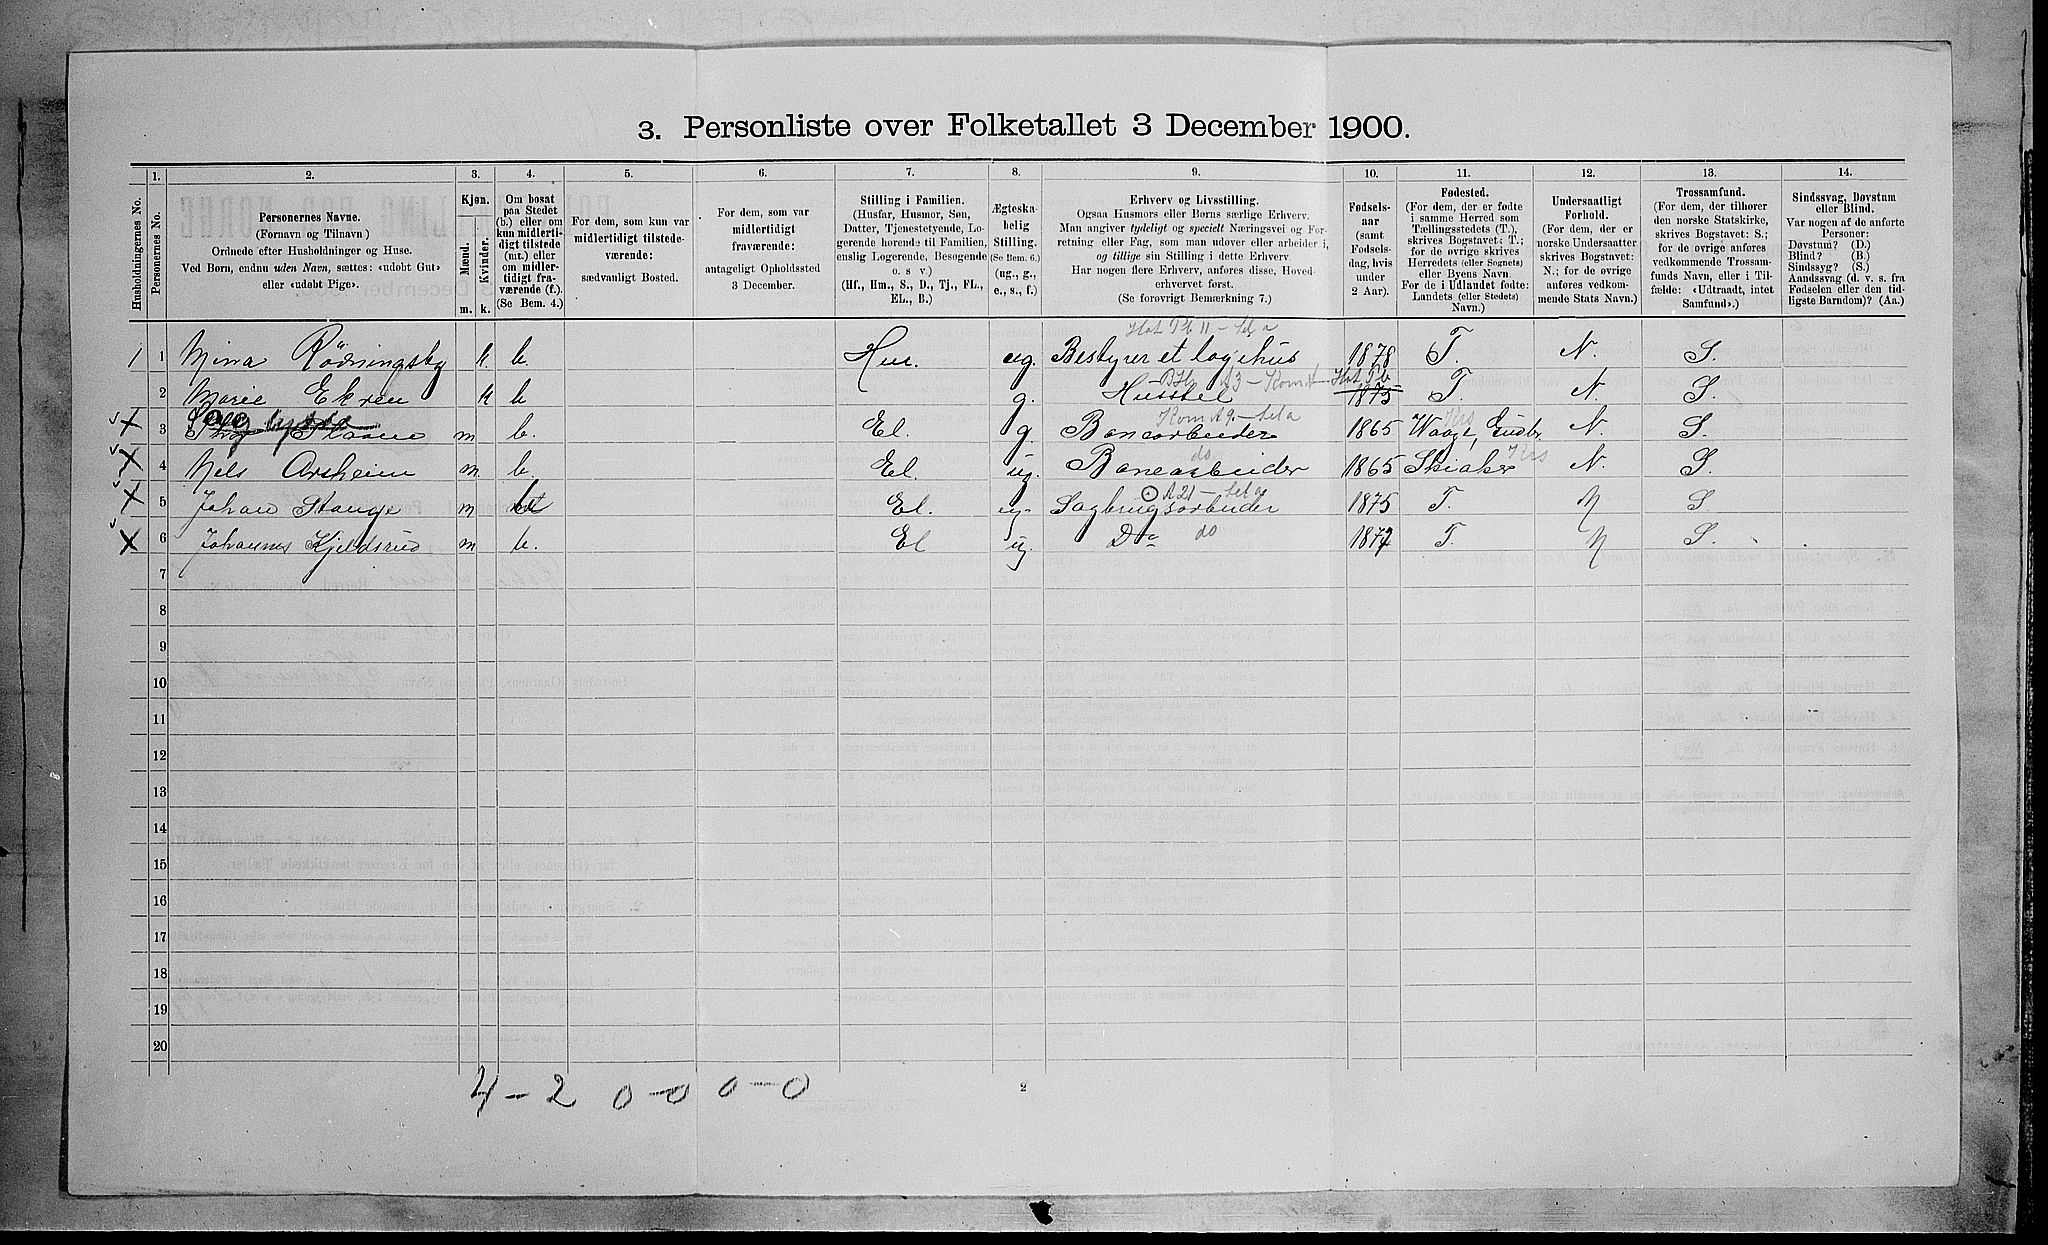 3. Personliste over Folketallet 3 December 1900.
1. 2. 3. 4. 5. 6. 7. 8. 9. 10. 11. 12. 13. 14.
Husholdningernes No.
Personernes No.
Personernes Navne.
(Fornavn og Tilnavn)
Ordnede efter Husholdninger og Huse.
Ved Børn, endnu uden Navn, sættes: «udøbt Gut»
eller «udøbt Pige».
Kjøn.
Mænd.
Kvinder.
m. k.
Om bosat
paa Stedet
(b.) eller om
kun midlerti-
digt tilstede
(mt.) eller
om midler-
tidigt fra-
værende (f.).
(Se Bem. 4.)
For dem, som kun var
midlertidigt tilstede-
værende:
sædvanligt Bosted.
For dem, som var
midlertidigt
fraværende:
antageligt Opholdssted
3 December.
Stilling i Familien.
(Husfar, Husmor, Søn,
Datter, Tjenestetyende, Lo-
gerende hørende til Familien,
enslig Logerende, Besøgende
o. s v.)
(Hf., Hm., S., D., Tj., FL.,
EL., B.)
Ægteska-
belig
Stilling.
(Se Bem. 6.)
(ug., g.,
e., s., f.)
Erhverv og Livsstilling.
Ogsaa Husmors eller Børns særlige Erhverv.
Man angiver tydeligt og specielt Næringsvei og For-
retning eller Fag, som man udøver eller arbeider i,
og tillige sin Stilling i dette Erhverv.
Har nogen flere Erhverv, anføres disse, Hoved-
erhvervet først.
(Se forøvrigt Bemærkning 7.)
Fødsels-
aar
(samt
Fødsels-
dag, hvis
under
2 Aar).
Fødested.
(For dem, der er fødte
i samme Herred som
Tællingsstedets (T.),
skrives Bogstavet: T.;
for de øvrige skrives
Herredets (eller Sognets)
eller Byens Navn.
For de i Udlandet fødte:
Landets (eller Stedets)
Navn.)
Undersaatligt
Forhold.
(For dem, der er
norske Undersaatter
skrives Bogstavet:
N.; for de øvrige
anføres vedkom-
mende Stats Navn.)
Trossamfund.
(For dem, der tilhører
den norske Statskirke,
skrives Bogstavet: S.;
for de øvrige anføres
vedkommende Trossam-
funds Navn, eller i Til-
fælde: «Udtraadt, intet
Samfund».)
Sindssvag, Døvstum
eller Blind.
Var nogen af de anførte
Personer:
Døvstum? (D.)
Blind? (B.)
Sindssyg? (S.)
Aandssvag (d. v. s. fra
Fødselen eller den tid-
ligste Barndom)? (Aa.)
1 1 Mina Rödningsby k b. Hus. ug. Bestyrer et logihus 1878 T. N. S.
2 Marie Ekren k b g. Husstel 1875 T. N. S.
X 3 m b. El. g. Banearbeider 1865 Waage, Gudbr. N. S.
X 4 Nels Aarsheim m. b. El. ug. Banearbeider 1865 Skiaker N. S.
X 5 Johan Stange m b El. ug. Sagbrugsarbeider 1875 T. N S
X 6 Johannes Kjeldsrud m b. El ug. Do do 1872 T. N S.
7
8
9
10
11
12
13
14
15
16
17
18
19
20
4 - 2 0 - 0 0 - 0
2